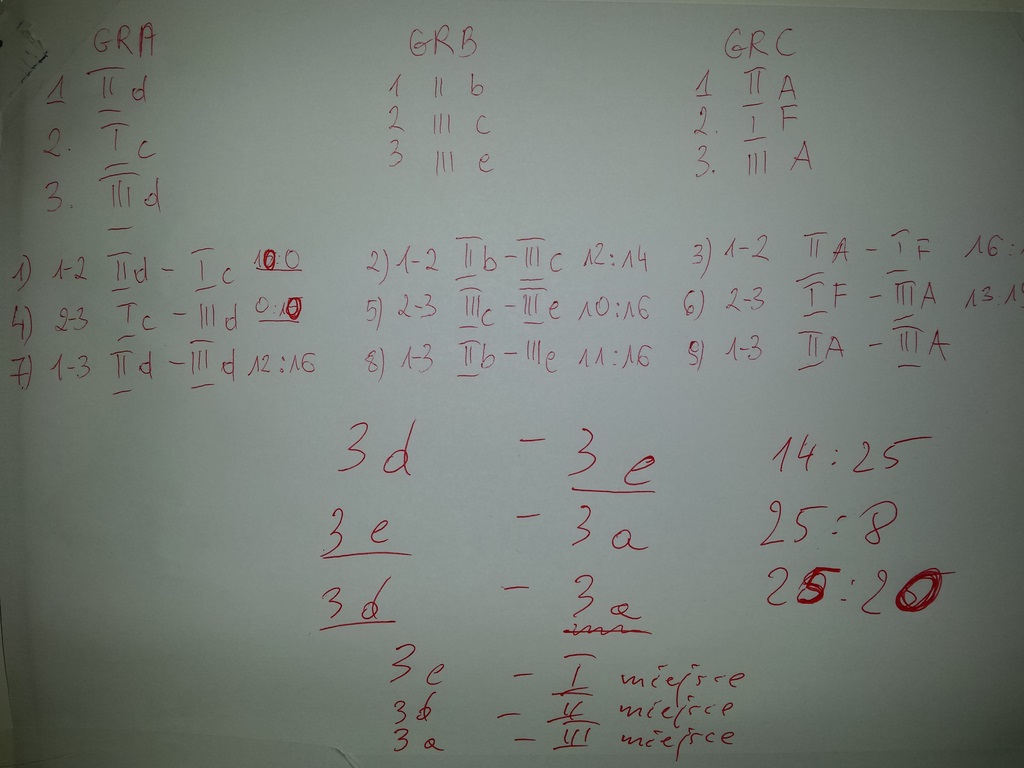 GRA GRB GRC
1 II d 1 II b 1 II A
2. I c 2 III c 2. I F
3. III d 3 III e 3. III A
1) 1-2 IId - I c 10:0 2) 1-2 IIb - III c 12:14 3) 1-2 II A - I F 16:
4) 2-3 I c - III d 0:10 5) 2-3 IIIc - IIIe 10:16 6) 2-3 I F - III A 13:
7) 1-3 II d - III d 12:16 8) 1-3 IIb - IIIe 11:16 9) 1-3 IIA - III A
3d - 3e 14:25
3e - 3a 25:8
3d - 3a 25:20
3e - I miejsce
3d - II miejsce
3a - III miejsce